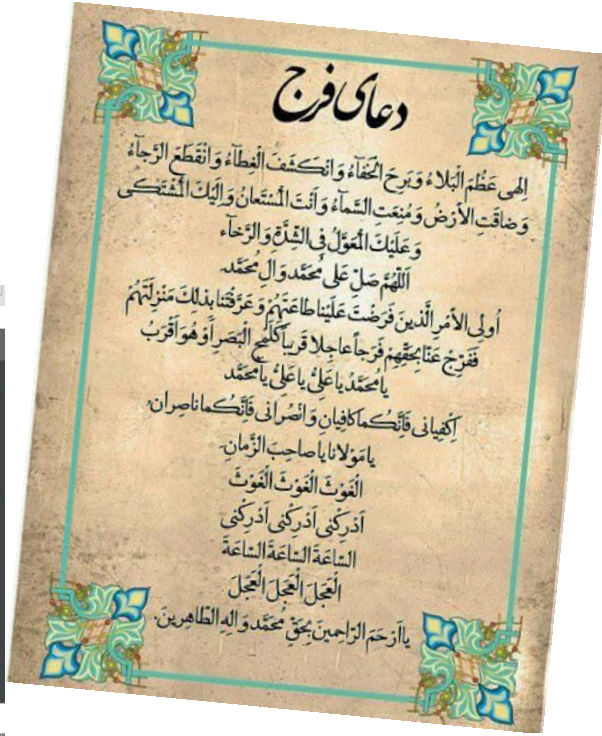 دعای فرج
اِلٰهی عَظُمَ الْبَلاءُ وَ بَرِحَ الْخَفآءُ وَ انْکَشَفَ الْغِطآءُ وَ انْقَطَعَ الرَّجآءُ
وَ ضاقَتِ الْاَرْضُ وَ مُنِعَتِ السَّمآءُ وَ اَنْتَ الْمُسْتَعانُ وَ اِلَیْكَ الْمُشْتَکی
وَ عَلَیْكَ الْمُعَوَّلُ فِی الشِّدَّةِ وَ الرَّخآء
اَللّهُمَّ صَلِّ عَلی مُحَمَّد وَ الِ مُحَمَّد.
اُولِی الاَمْرِ الَّذینَ فَرَضْتَ عَلَیْنا طاعَتَهُمْ وَ عَرَّفْتَنا بِذلِكَ مَنْزِلَتَهُمْ
فَفَرِّجْ عَنّا بِحَقِّهِمْ فَرَجاً عاجِلا قَریباً کَلَمْحِ الْبَصَرِ اَوْ هُوَ اَقْرَبُ
یا مُحَمَّدُ یا عَلِیُّ یا عَلِیُّ یا مُحَمَّد
اِکْفِیانی فَاِنَّکُما کافِیانِ وَ انْصُرانی فَاِنَّکُما ناصِران.
یا مَوْلانا یا صاحِبَ الزَّمانِ.
الْغَوْثَ الْغَوْثَ الْغَوْثَ
اَدْرِکْنی اَدْرِکْنی اَدْرِکْنی
السّاعَةَ السّاعَةَ السّاعَةَ
الْعَجَلَ الْعَجَلَ الْعَجَلَ
یا اَرْحَمَ الرّاحِمینَ بِحَقِّ مُحَمَّد وَ الِهِ الطّاهِرینَ.